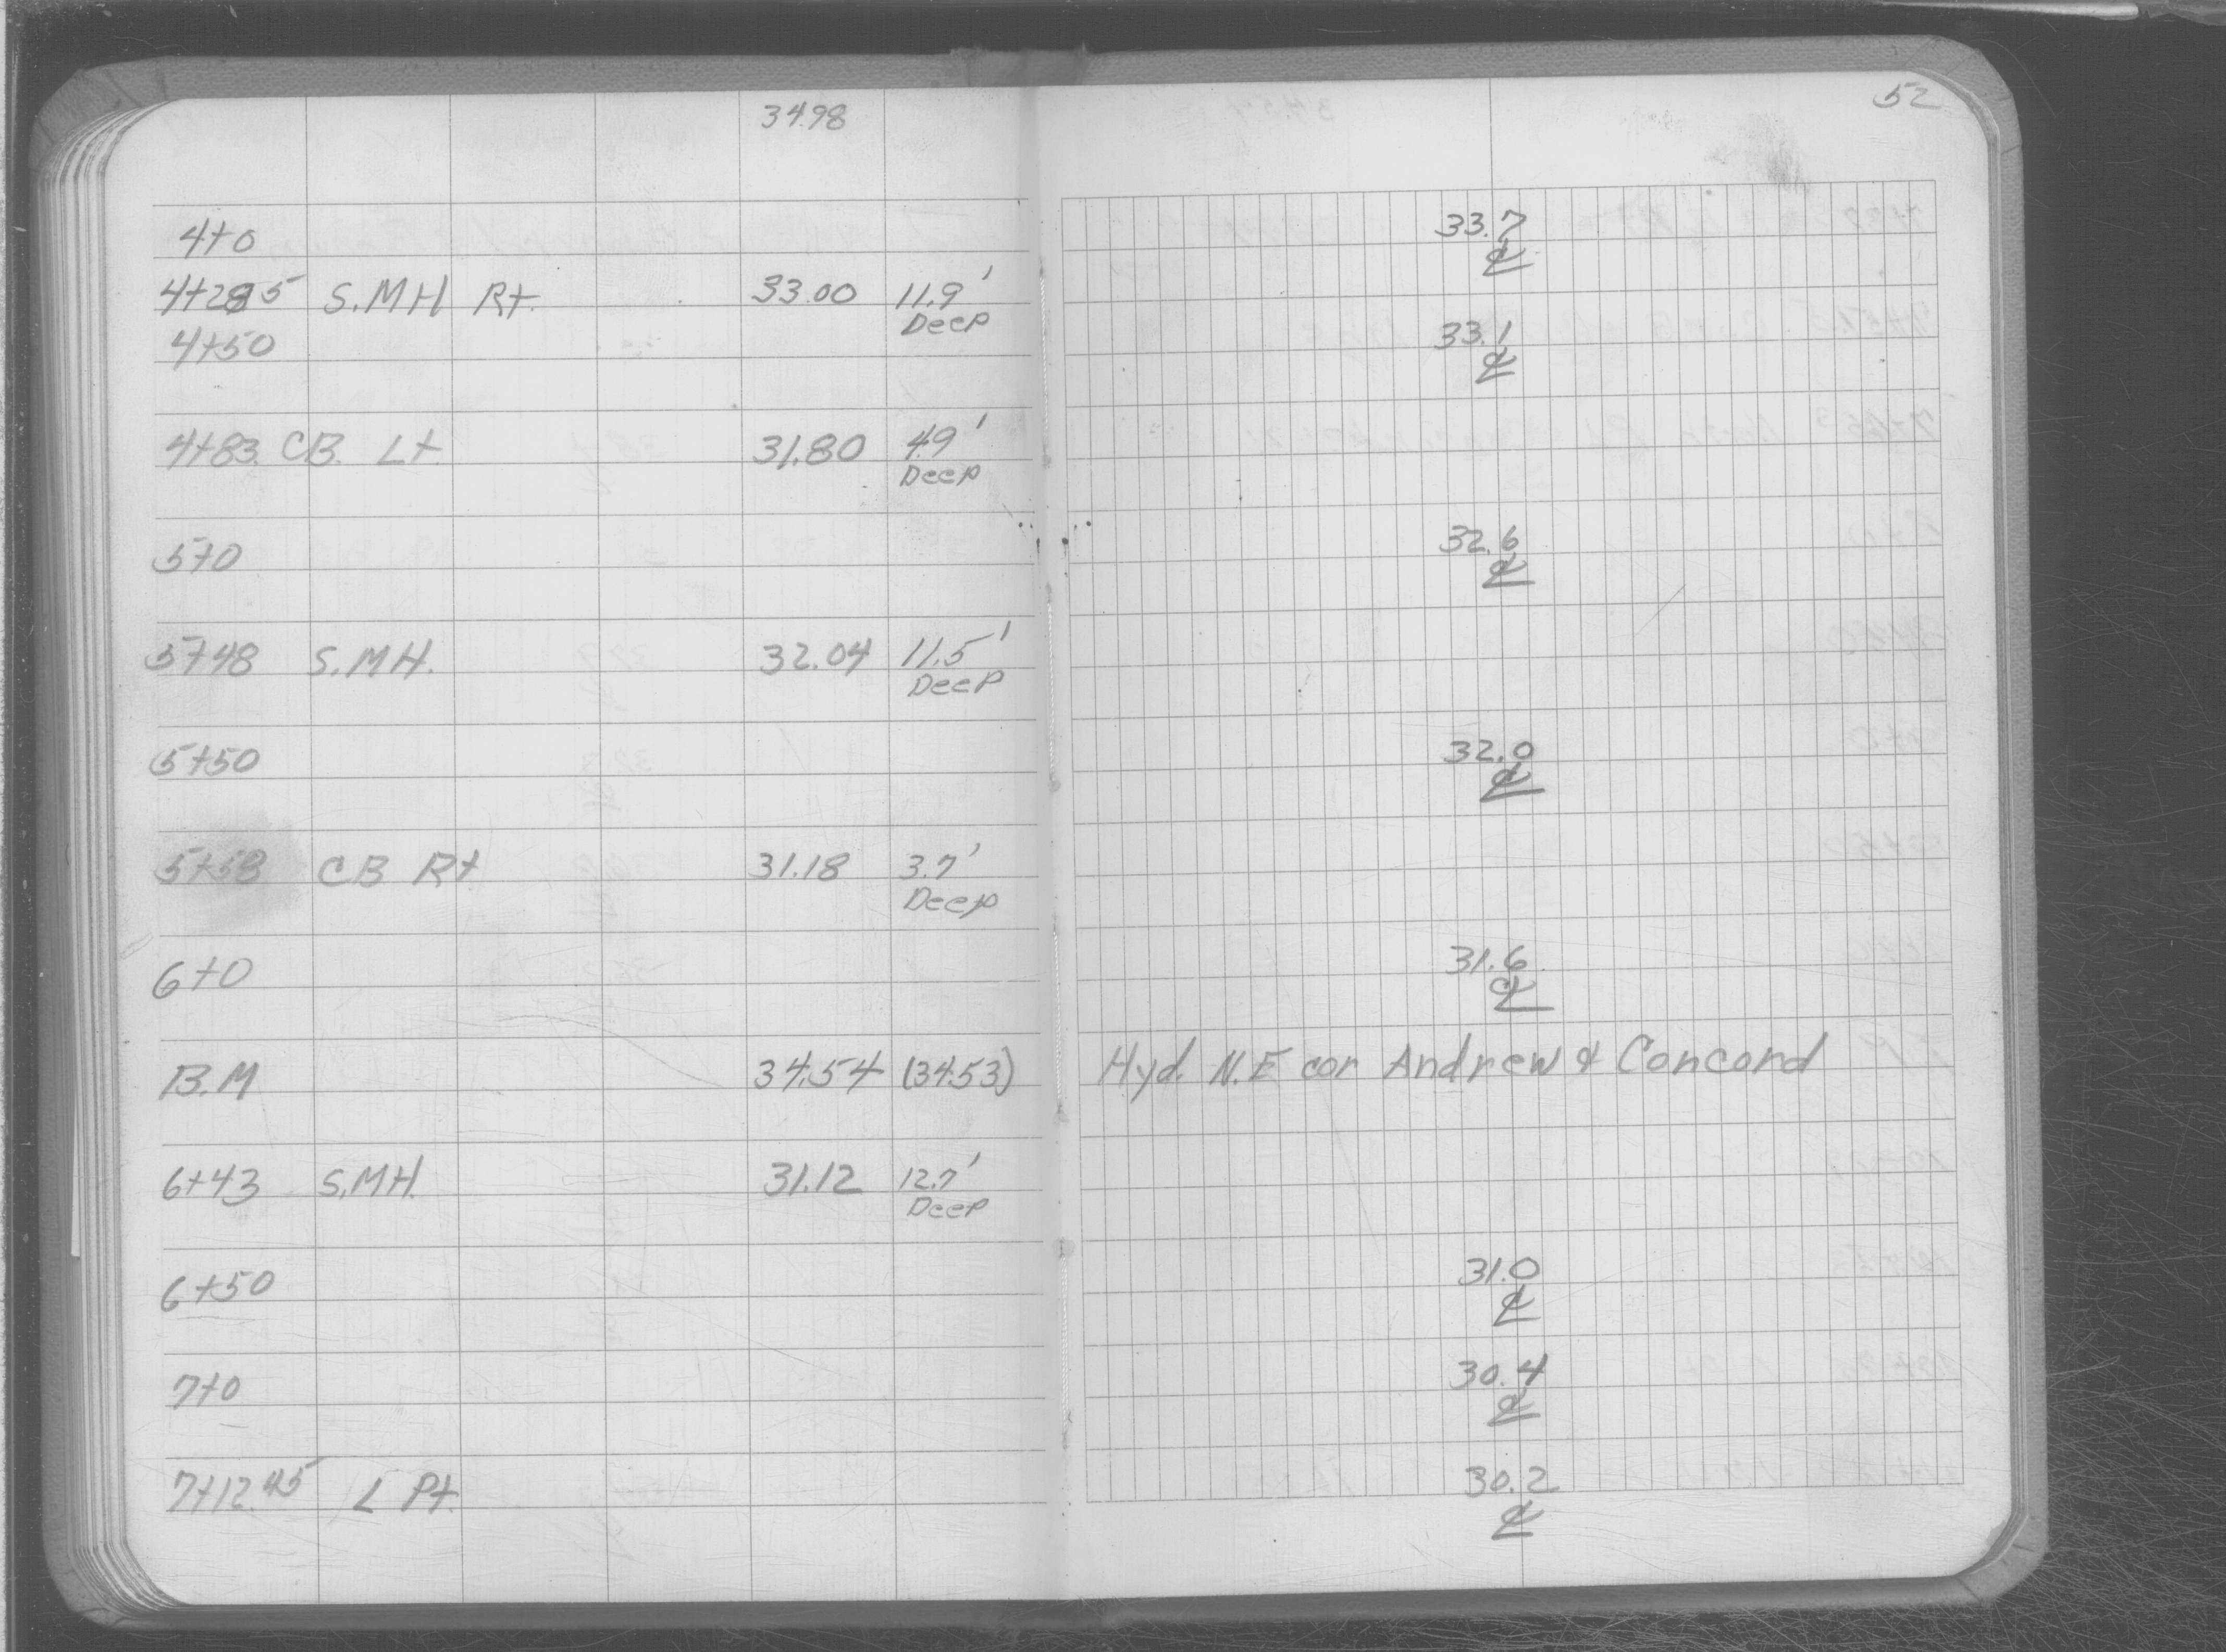 52
34.98
4+0 33.7 ℄
4+28.5 S.MH Rt. 33.00 11.9' Deep
4+50 33.1 ℄
4+83. CB. Lt. 31.80 4.9' Deep
5+0 32.6 ℄
5+48 S.MH. 32.04 11.5' Deep
5+50 32.0 ℄
5+58 CB Rt 31.18 3.7' Deep
6+0 31.6 ℄
B.M 34.54 (34.53) Hyd. N.E cor Andrew & Concord
6+43 S.MH. 31.12 12.7' Deep
6+50 31.0 ℄
7+0 30.4 ℄
7+12.45 L Pt. 30.2 ℄